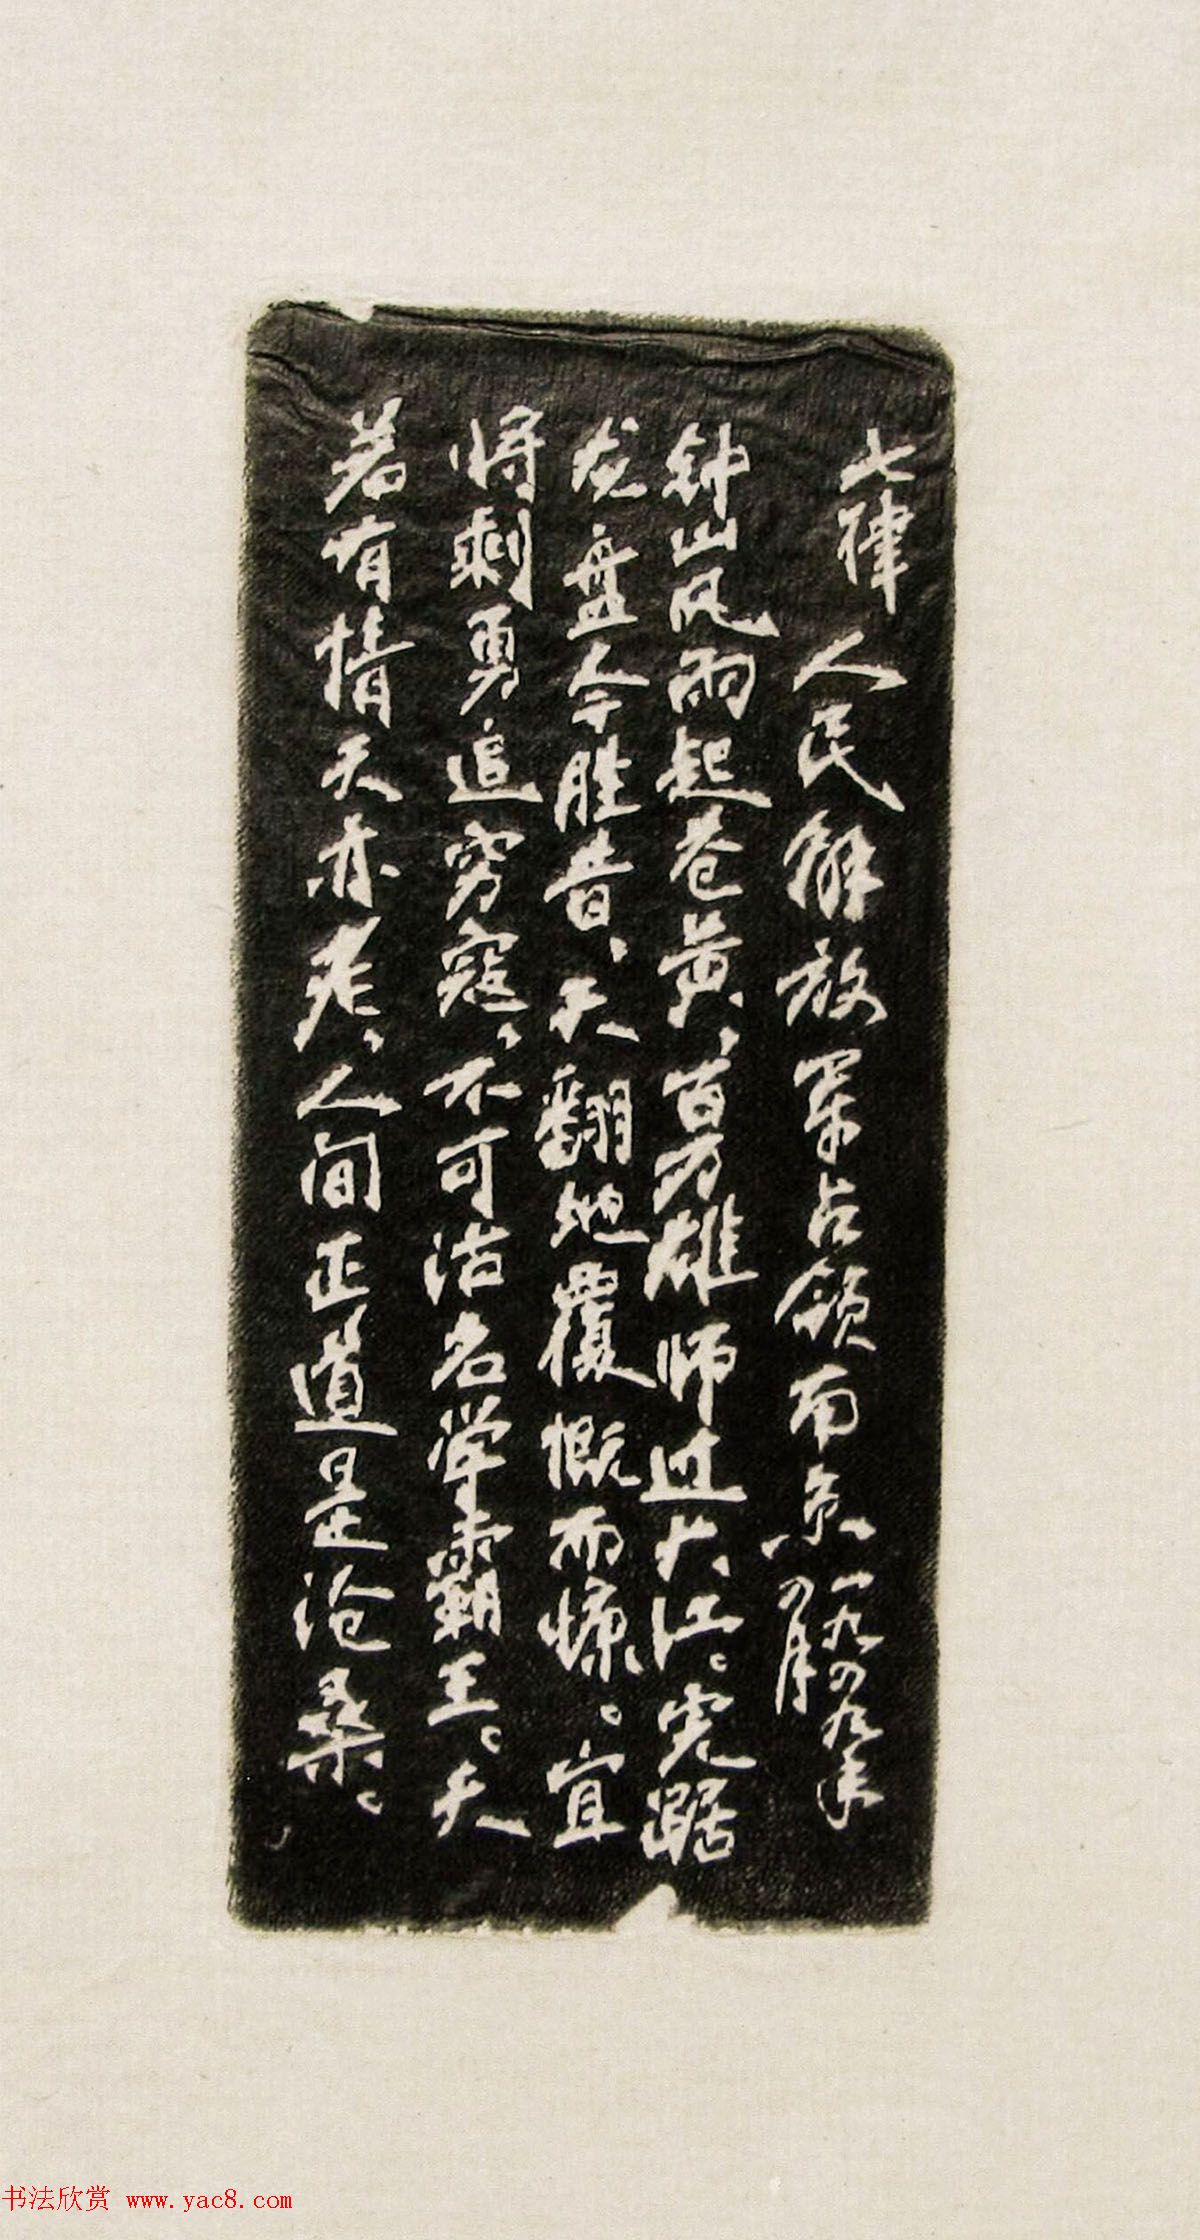 七律 人民解放军占领南京、一九四九年
四月
钟山风雨起苍黄、百万雄师过大江。虎踞
龙盘今胜昔、天翻地覆慨而慷。宜
将剩勇追穷寇、不可沽名学霸王。天
若有情天亦老、人间正道是沧桑。
书法欣赏 www.yac8.com